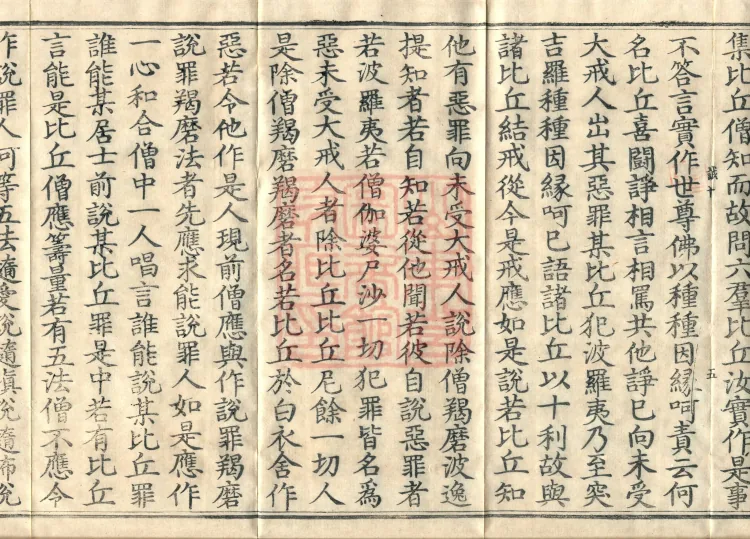 集比丘僧知而故問六羣比丘汝實作是事
不答言實作世尊佛以種種因緣呵責云何
名比丘喜鬪諍相言相罵共他諍已向未受
大戒人出其惡罪某比丘犯波羅夷乃至突
吉羅種種因緣呵已語諸比丘以十利故與
諸比丘結戒從今是戒應如是說若比丘知
他有惡罪向未受大戒人說除僧羯磨波逸
提知者若自知若從他聞若彼自說惡罪者
若波羅夷若僧伽婆尸沙一切犯罪皆名爲
惡未受大戒人者除比丘比丘尼餘一切人
是除僧羯磨羯磨者名若比丘於白衣舍作
惡若令他作是人現前僧應與作說罪羯磨
說罪羯磨法者先應求能說罪人如是應作
一心和合僧中一人唱言誰能說某比丘罪
誰能某居士前說某比丘罪是中若有比丘
言能是比丘僧應籌量若有五法僧不應令
作說罪人何等五法隨愛說隨瞋說隨怖說
五